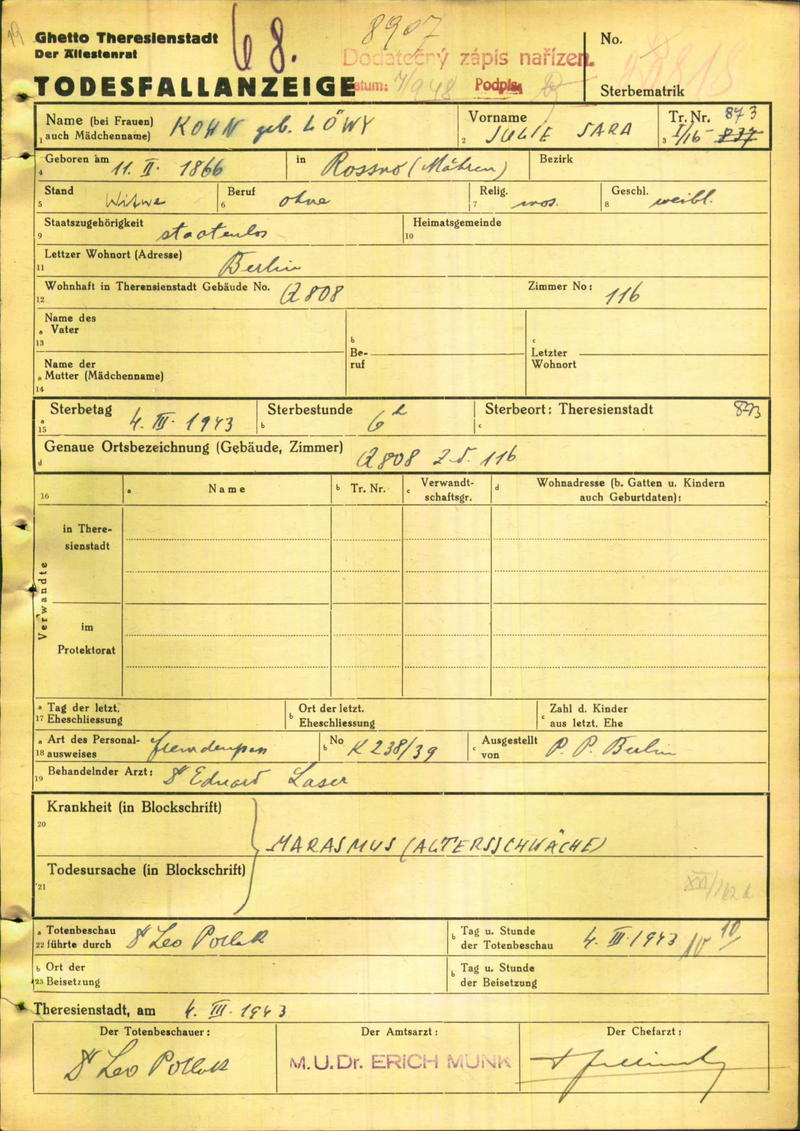 Ghetto Theresienstadt
Der Ältestenrat
68.
8907
Dodatečný zápis nařízen.
Datum: Podpis:
No.
TODESFALLANZEIGE
Sterbematrik
Name (bei Frauen) KOHN geb. LÖWY Vorname JULIE SARA Tr. Nr. 873
1 auch Mädchenname) 2 3 I/16- 837
Geboren am 11. II. 1866 in Rossno (Mähren) Bezirk
4
Stand Witwe Beruf ohne Relig. mos. Geschl. weibl.
5 6 7 8
Staatszugehörigkeit staatenlos Heimatsgemeinde
9 10
Lettzer Wohnort (Adresse) Berlin
11
Wohnhaft in Therensienstadt Gebäude No. Q 808 Zimmer No: 116
12
Name des
a Vater
13
b Be-
ruf
c
Letzter
Wohnort
Name der
a Mutter (Mädchenname)
14
Sterbetag 4. III. 1943 Sterbestunde 6h Sterbeort: Theresienstadt 873
a 15 b c
Genaue Ortsbezeichnung (Gebäude, Zimmer) Q 808 Z. 116
d
16 a Name b Tr. Nr. c Verwandt-
schaftsgr. d Wohnadresse (b. Gatten u. Kindern
auch Geburtdaten):
Verwandte
in There-
sienstadt
im
Protektorat
a Tag der letzt. b Ort der letzt. c Zahl d. Kinder
17 Eheschliessung Eheschliessung aus letzt. Ehe
a Art des Personal- Fremdenpass b No K 238/39 c Ausgestellt P. P. Berlin
18 ausweises von
Behandelnder Arzt: Dr Eduard Laser
19
Krankheit (in Blockschrift)
20
MARASMUS (ALTERSSCHWÄCHE)
Todesursache (in Blockschrift)
21
a Totenbeschau Dr Leo Pollak b Tag u. Stunde 4. III. 1943 10 10
22 führte durch der Totenbeschau
b Ort der b Tag u. Stunde
23 Beisetzung der Beisetzung
Theresienstadt, am 4. III. 1943
Der Totenbeschauer: Der Amtsarzt: Der Chefarzt:
Dr Leo Pollak M.U.Dr. ERICH MUNK